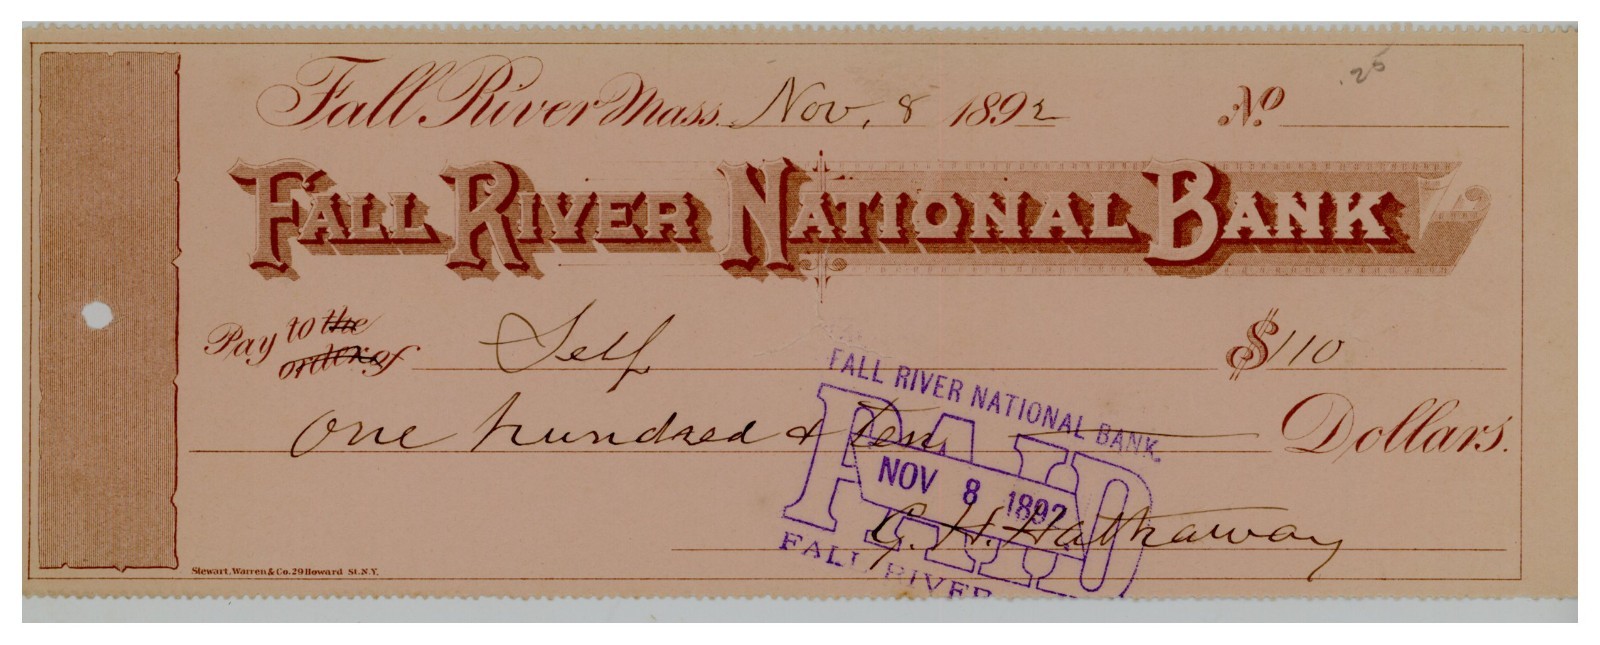 .25
Fall River Mass. Nov. 8 1892 No
FALL RIVER NATIONAL BANK
Pay to the order of Self $110
One hundred & Ten Dollars.
FALL RIVER NATIONAL BANK.
PAID
NOV 8 1892
FALL RIVER
G. H. Hathaway
Stewart, Warren & Co. 29 Howard St. N.Y.